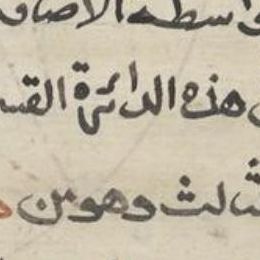 واسطه الاضافـ
هذه الدائرة القسـ
ثالث وهو من